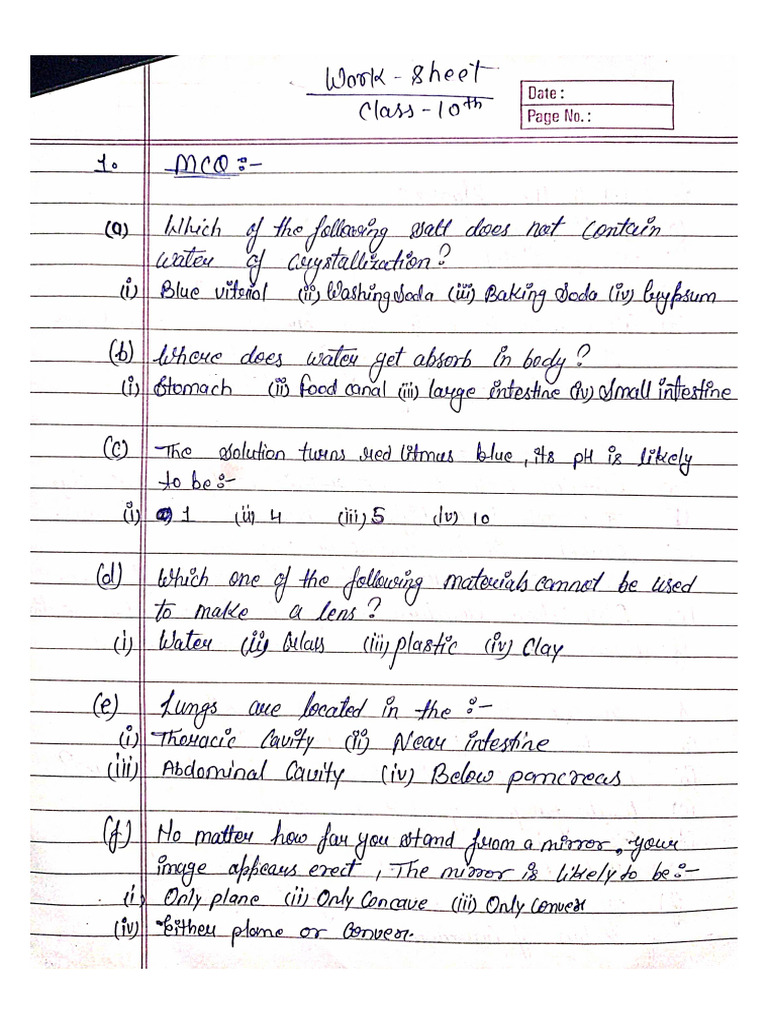 Work - Sheet
Class - 10th
Date :
Page No. :
1. MCQ :-
(a) Which of the following salt does not contain
water of crystallization?
(i) Blue vitriol (ii) Washing Soda (iii) Baking Soda (iv) Gypsum
(b) Where does water get absorb in body?
(i) Stomach (ii) food canal (iii) large intestine (iv) Small intestine
(c) The solution turns red litmus blue, its pH is likely
to be :-
(i) 1 (ii) 4 (iii) 5 (iv) 10
(d) Which one of the following materials cannot be used
to make a lens?
(i) Water (ii) Glass (iii) plastic (iv) Clay
(e) Lungs are located in the :-
(i) Thoracic Cavity (ii) Near intestine
(iii) Abdominal Cavity (iv) Below pancreas
(f) No matter how far you stand from a mirror, your
image appears erect, The mirror is likely to be :-
(i) Only plane (ii) Only Concave (iii) Only Convex
(iv) Either plane or Convex.